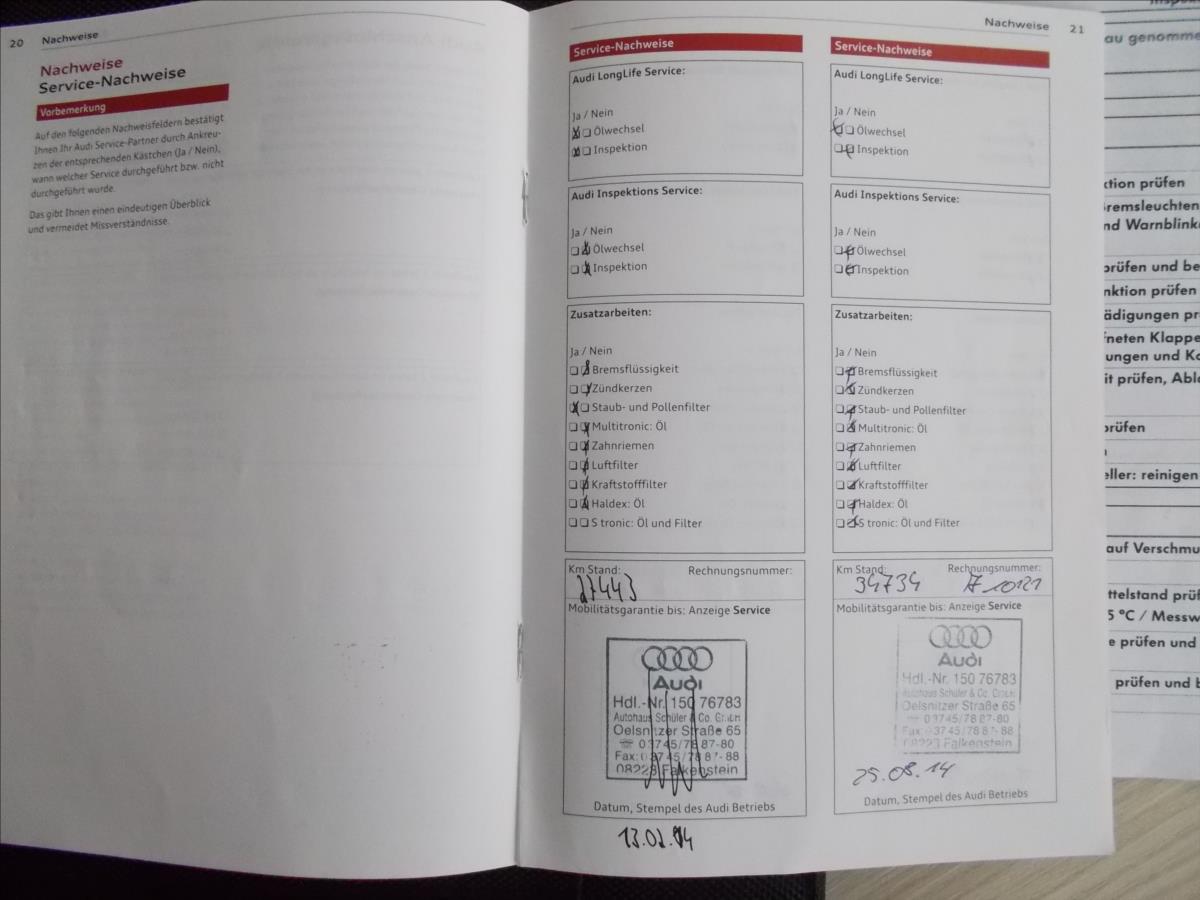 20 Nachweise
Nachweise
Service-Nachweise
Vorbemerkung
Auf den folgenden Nachweisfeldern bestätigt
Ihnen Ihr Audi Service-Partner durch Ankreu-
zen der entsprechenden Kästchen (Ja / Nein),
wann welcher Service durchgeführt bzw. nicht
durchgeführt wurde.
Das gibt Ihnen einen eindeutigen Überblick
und vermeidet Missverständnisse.
Nachweise 21
Service-Nachweise
Audi LongLife Service:
Ja / Nein
Ölwechsel
Inspektion
Audi Inspektions Service:
Ja / Nein
Ölwechsel
Inspektion
Zusatzarbeiten:
Ja / Nein
Bremsflüssigkeit
Zündkerzen
Staub- und Pollenfilter
Multitronic: Öl
Zahnriemen
Luftfilter
Kraftstofffilter
Haldex: Öl
S tronic: Öl und Filter
Km Stand: Rechnungsnummer:
27443
Mobilitätsgarantie bis: Anzeige Service
Audi
Hdl.-Nr. 150 76783
Autohaus Schüler & Co. GmbH
Oelsnitzer Straße 65
☎ 03745/78 87-80
Fax: 03745/78 87-88
08223 Falkenstein
Datum, Stempel des Audi Betriebs
Service-Nachweise
Audi LongLife Service:
Ja / Nein
Ölwechsel
Inspektion
Audi Inspektions Service:
Ja / Nein
Ölwechsel
Inspektion
Zusatzarbeiten:
Ja / Nein
Bremsflüssigkeit
Zündkerzen
Staub- und Pollenfilter
Multitronic: Öl
Zahnriemen
Luftfilter
Kraftstofffilter
Haldex: Öl
S tronic: Öl und Filter
Km Stand: Rechnungsnummer:
34734
Mobilitätsgarantie bis: Anzeige Service
Audi
Hdl.-Nr. 150 76783
Autohaus Schüler & Co. GmbH
Oelsnitzer Straße 65
03745/78 87-80
Fax: 03745/78 87-88
08223 Falkenstein
25.08.14
Datum, Stempel des Audi Betriebs
au genomme
ktion prüfen
remsleuchten
nd Warnblink
prüfen und be
nktion prüfen
ädigungen pr
fneten Klappe
ungen und Ko
it prüfen, Abl
prüfen
eller: reinigen
auf Verschmu
ttelstand prüf
5 °C / Messw
e prüfen und
prüfen und b